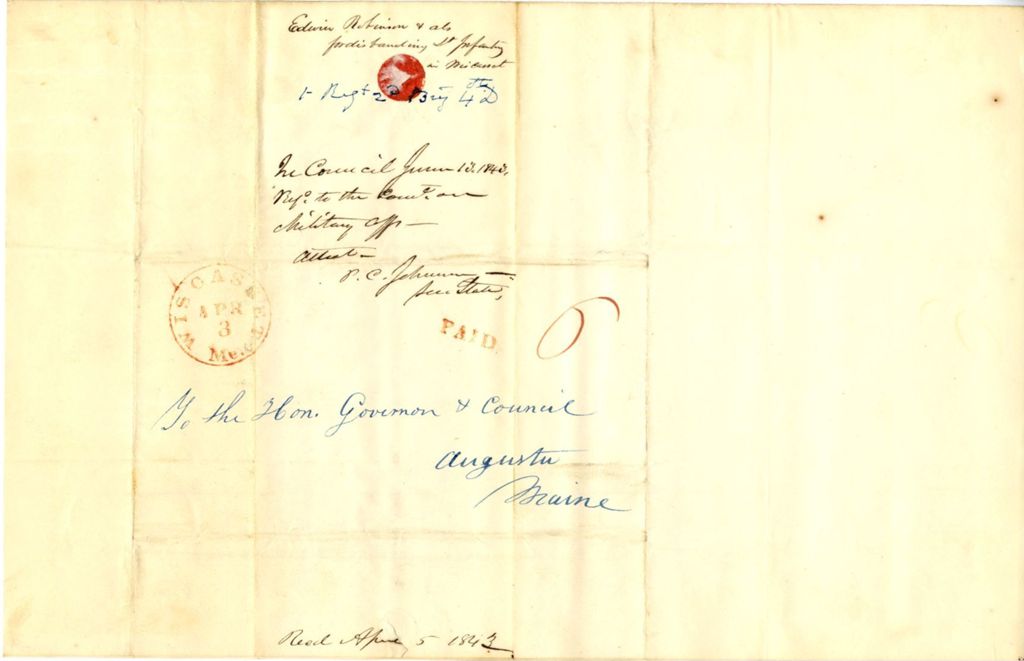 Edwin Robinson & als
for disbanding Lt Infantry
in Wiscasset
1 Regt 2d Brig 4th D
In Council June 13. 1843.
Refd. to the Comte. on
Military Affs —
Attest —
P. C. Johnson —
Sec State,
WISCASSET
APR
3
Me.
PAID.
6
To the Hon. Governon & Council
Augusta
Maine
Recd April 5 1843